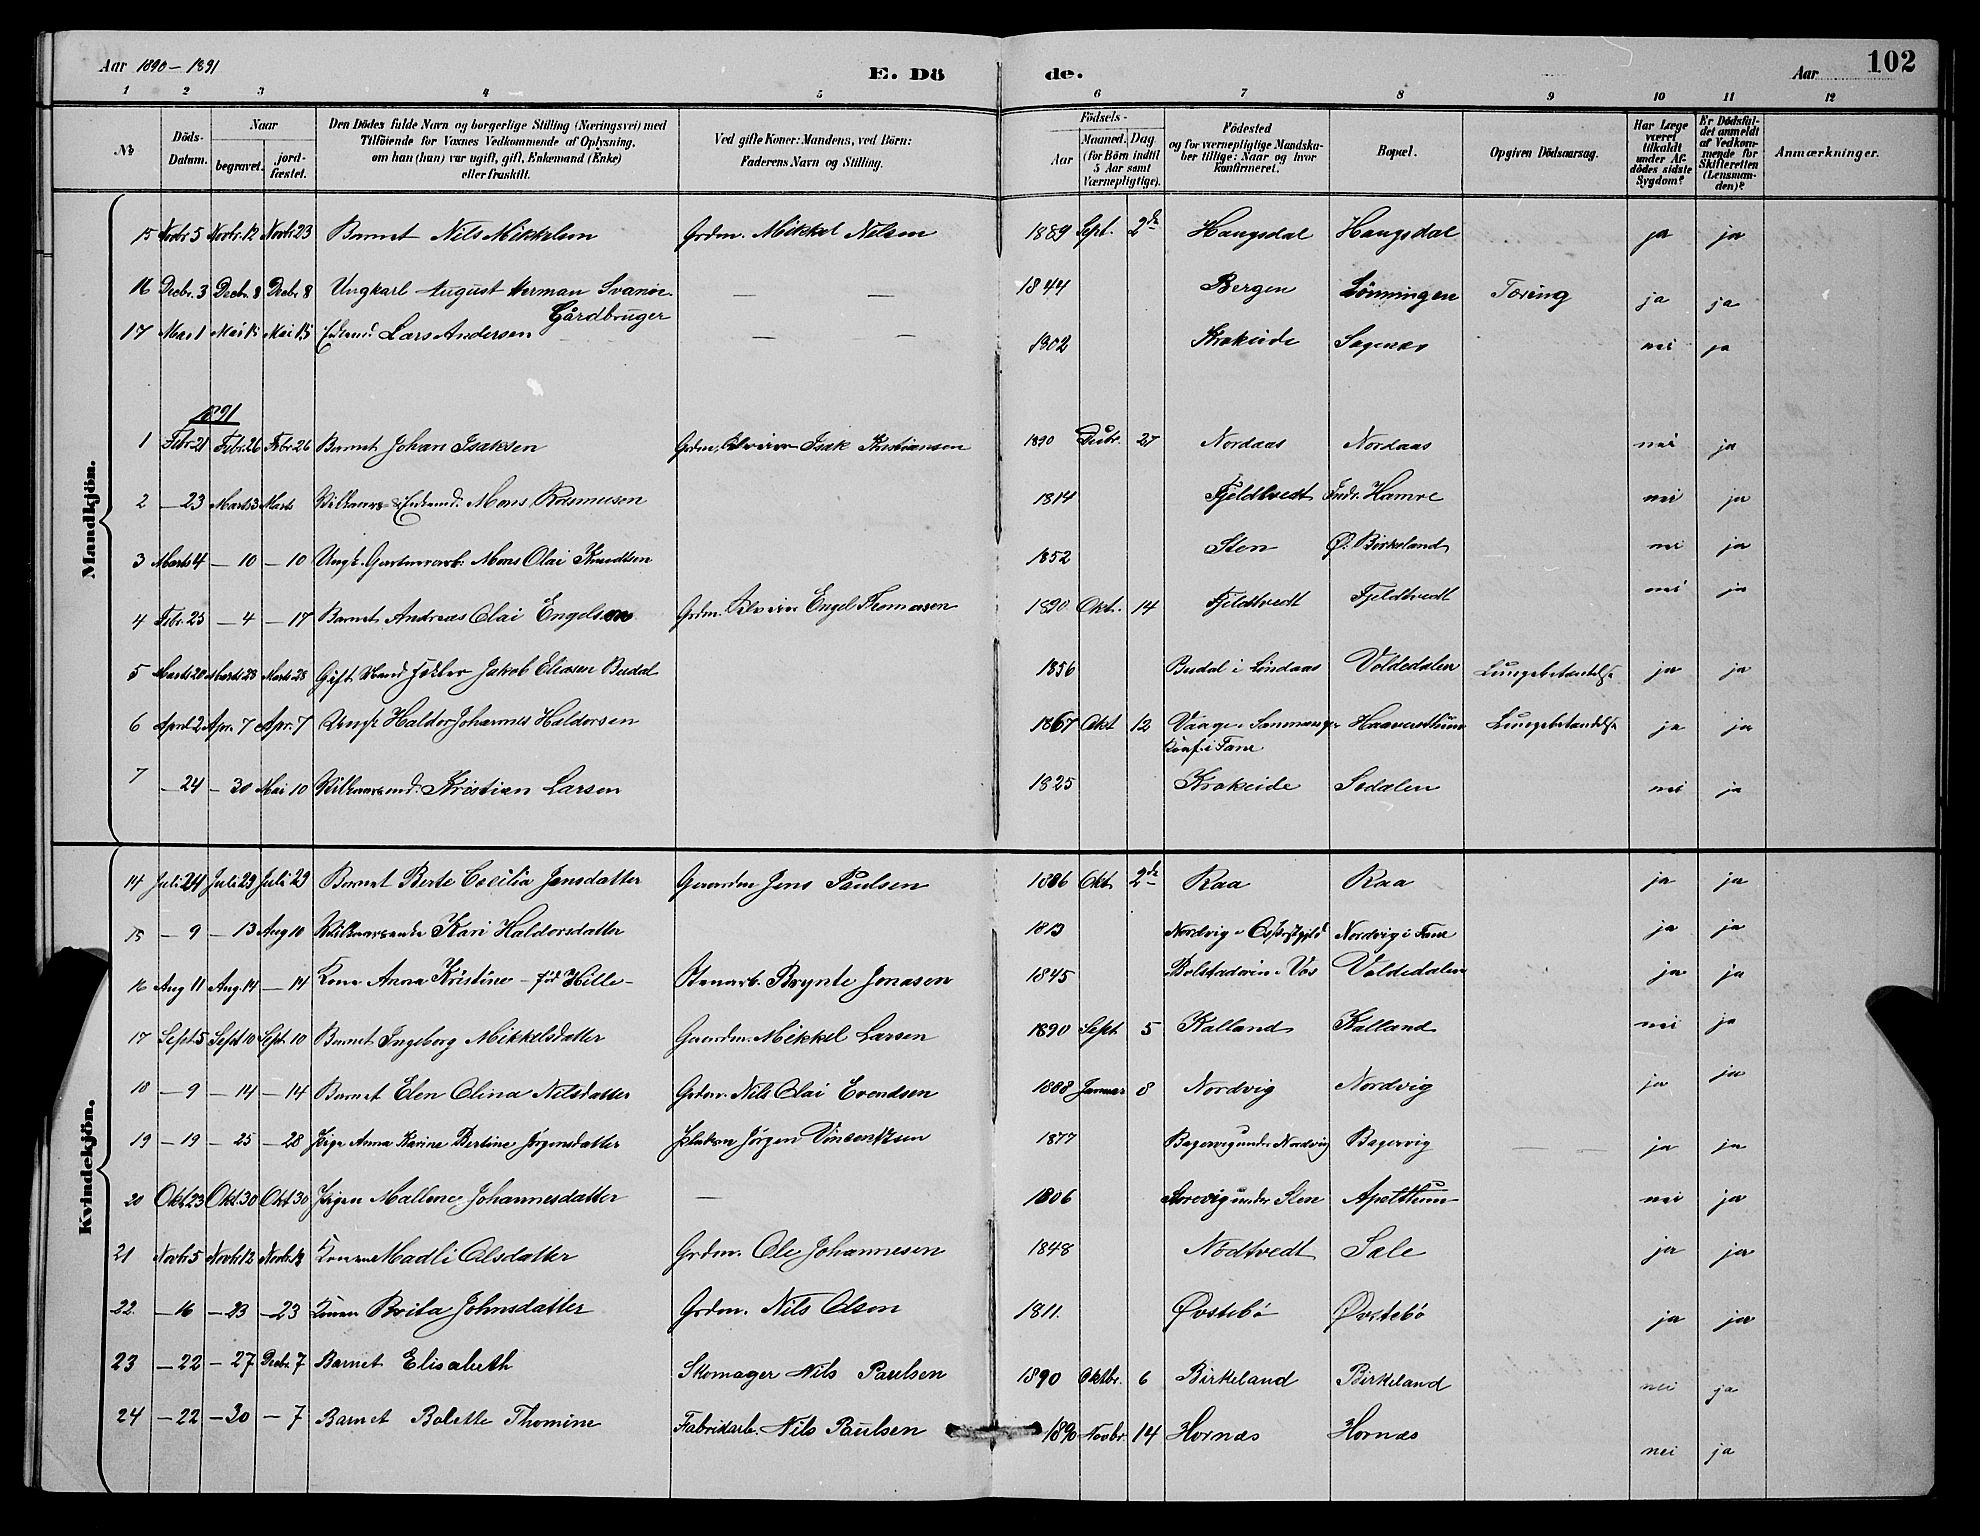 Aar 1890 – 1891 E. Dö de. Aar 102
1 2 3 4 5 6 7 8 9 10 11 12
№ Döds-Datum. Naar begravet. jord-fæstet. Den Dödes fulde Navn og borgerlige Stilling (Næringsvei) med Tilföiende for Voxnes Vedkommende af Oplysning, om han (hun) var ugift, gift, Enkemand (Enke) eller fraskilt. Ved gifte Koner: Mandens, ved Börn: Faderens Navn og Stilling. Födsels- Aar Maaned. Dag (for Börn indtil 5 Aar samt Værnepligtige). Födested og for værnepligtige Mandskaber tillige: Naar og hvor konfirmeret. Bopæl. Opgiven Dödsaarsag. Har Læge været tilkaldt under Afdödes sidste Sygdom? Er Dødsfaldet anmeldt af Vedkommende for Skifteretten (Lensmanden)? Anmærkninger.
Mandkjön.
15 Novbr. 5 Novbr. 12 Novbr. 23 Barnet Nils Mikkelsen Grdm. Mikkel Nilsen 1889 Sept. 2de Haugsdal Haugsdal ja ja
16 Decbr. 3 Decbr. 8 Decbr. 8 Ungkarl August Herman Svanøe — — 1844 Bergen Lönningen Tæring ja ja
17 Mai 1 Mai 15 Mai 15 Enkemd. Gårdbruger Lars Andersen — — 1802 Krokeide Sagenæs nei ja
1891
1 Febr. 21 Febr. 26 Febr. 26 Barnet Johan Isaksen Grdm. Isak Kristiansen 1890 Decbr. 27 Nordaas Nordaas nei ja
2 — 23 Marts 3 Marts Vilkaars- & Enkemd. Mons Rasmusen 1814 Fjeldtvedt Indr. Hamre nei ja
3 Marts 4 — 10 — 10 Ungk. Mons Olai Knudtsen 1852 Sten Ø. Birkeland nei ja
4 Febr. 25 — 4 — 17 Barnet Andreas Olai Engelsen Grdm. Engel Thomasen 1890 Okt. 14 Fjeldtvedt Fjeldtvedt nei ja
5 Marts 20 Marts 23 Marts 28 Gift Mand Jakob Eliasen Budal 1856 Budal i Lindaas Voldedalen Lungebetændelse ja ja
6 April 2 Apr. 7 Apr. 7 Ungk. Haldor Johannes Haldorsen 1867 Okt 12 Vaage i Samnanger Konf. i Fane Lungebetændelse ja ja
7 — 24 — 30 Mai 10 Vilkaarsmd. Kristian Larsen 1825 Krokeide Sædalen nei ja
Kvindekjön.
14 Juli 24 Juli 29 Juli 29 Barnet Berte Cecilia Jensdatter Gaardm Jens Paulsen 1886 Okt 2de Raa Raa ja ja
15 — 9 — 13 Aug 10 Vilkaarsenke Kari Haldorsdatter 1813 Nordvig i Nordvig i Fane ja ja
16 Aug 11 Aug. 14 — 14 Kone Anna Kristine – föd Hille – Stenarb. Brynte Jonasen 1845 Bolstadøren i Vos Voldedalen ja ja
17 Sept 5 Sept 10 Sept. 10 Barnet Ingeborg Mikkelsdatter Gaardm. Mikkel Larsen 1890 Sept 5 Kalland Kalland nei ja
18 — 9 — 14 — 14 Barnet Elen Olina Nilsdatter Grdm. Nils Olai Evendsen 1888 Januar 8 Nordvig Nordvig ja ja
19 — 19 — 25 — 28 Pige Anna Karine Bertine Jörgensdatter Jörgen Vincentsen 1877 Bagervig under Nordvig Bagervig — — ja ja
20 Okt 23 Okt 30 Okt 30 Pigen Mallene Johannesdatter — 1806 Sørevig under Sten Apelthun nei ja
21 Novbr. 5 Novbr. 12 Novbr. 19 Konen Madli Olsdatter Grdm. Ole Johannesen 1848 Nödtvedt Sæle ja ja
22 — 16 — 23 — 23 Konen Brita Johnsdatter Grdm. Nils Olsen 1811. Øvstebö Øvstebö ja ja
23 — 22 — 27 Decbr. 7 Barnet Elisabeth Skomager Nils Paulsen 1890 Oktbr. 6 Birkeland Birkeland nei ja
24 — 22 — 30 — 7 Barnet Bolette Thomine Fabrikarb. Nils Paulsen 1890 Novbr. 14 Hornæs Hornæs nei ja